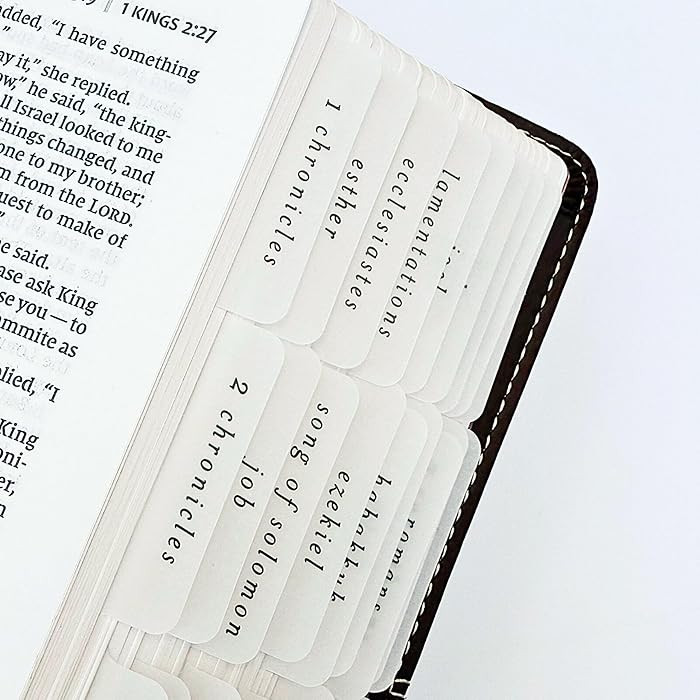 1 KINGS 2:27
added, “I have something
ay it,” she replied.
ow,” he said, “the king-
ll Israel looked to me
things changed, and
one to my brother;
m from the LORD.
uest to make of
e said.
ase ask King
se you — to
ommite as
plied, “I
King
oni-
er,
n
1 chronicles
esther
ecclesiastes
lamentations
2 chronicles
job
song of solomon
ezekiel
habakkuk
romans